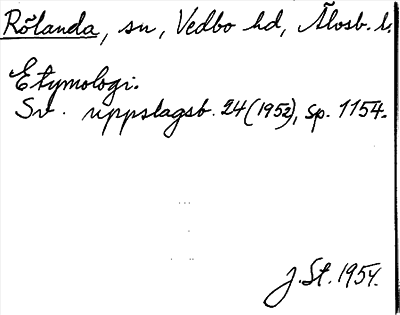 Rölanda, sn, Vedbo hd, Älvsb. l.
Etymologi.
Sv. uppslagsb. 24 (1952), sp. 1154.
J. St. 1954.